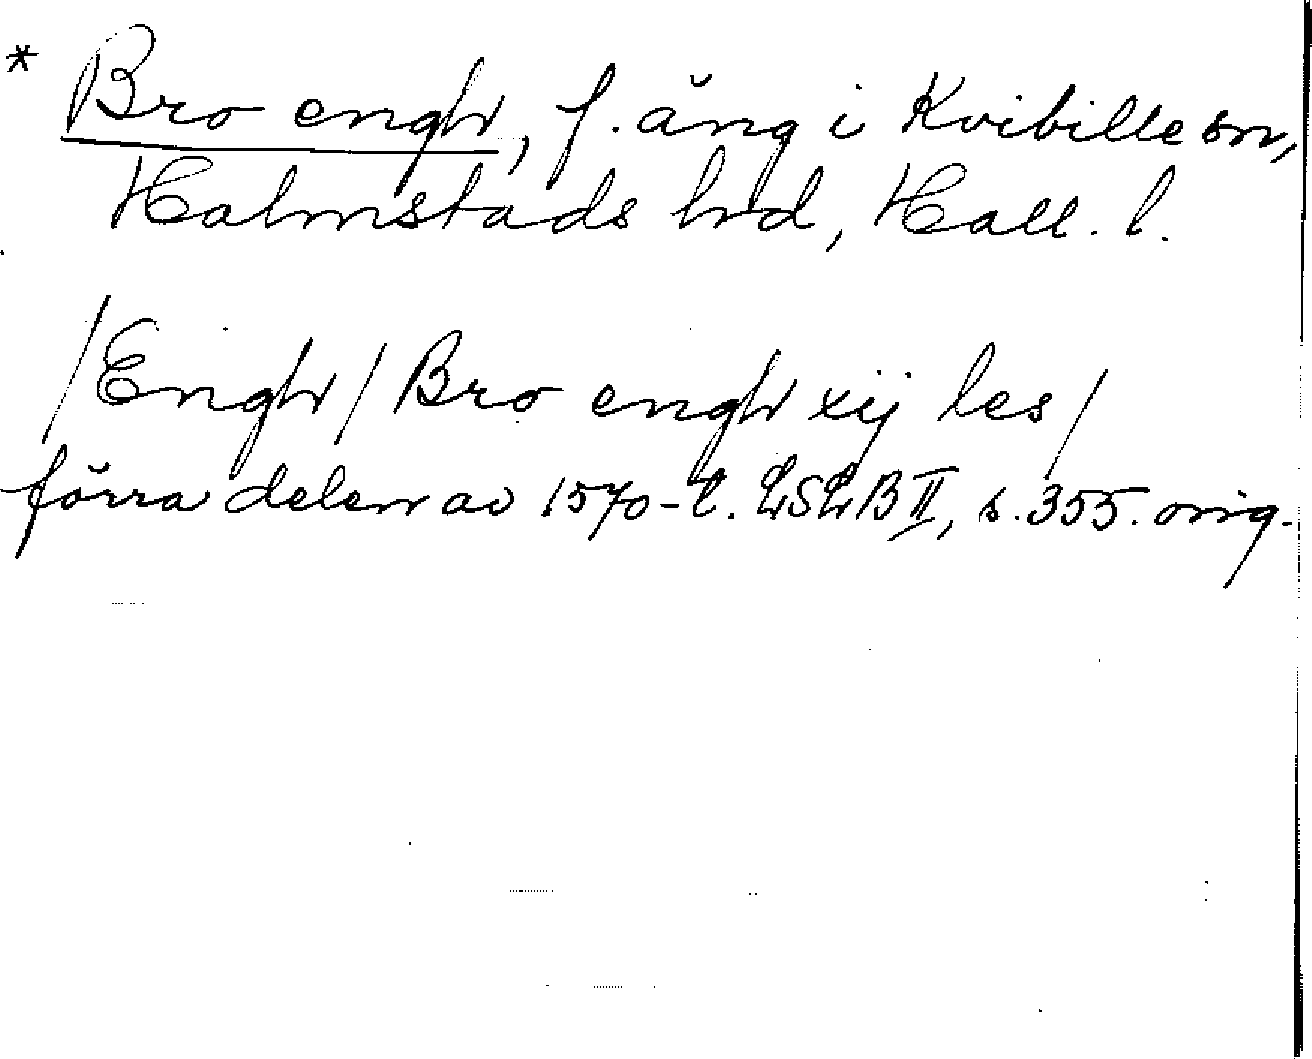 * Bro engh, f. äng i Kvibille sn,
Halmstads hrd, Hall. l.
/Engh/ Bro engh xij les/
förra delen av 1570-t. LSLB II, s. 355. orig.